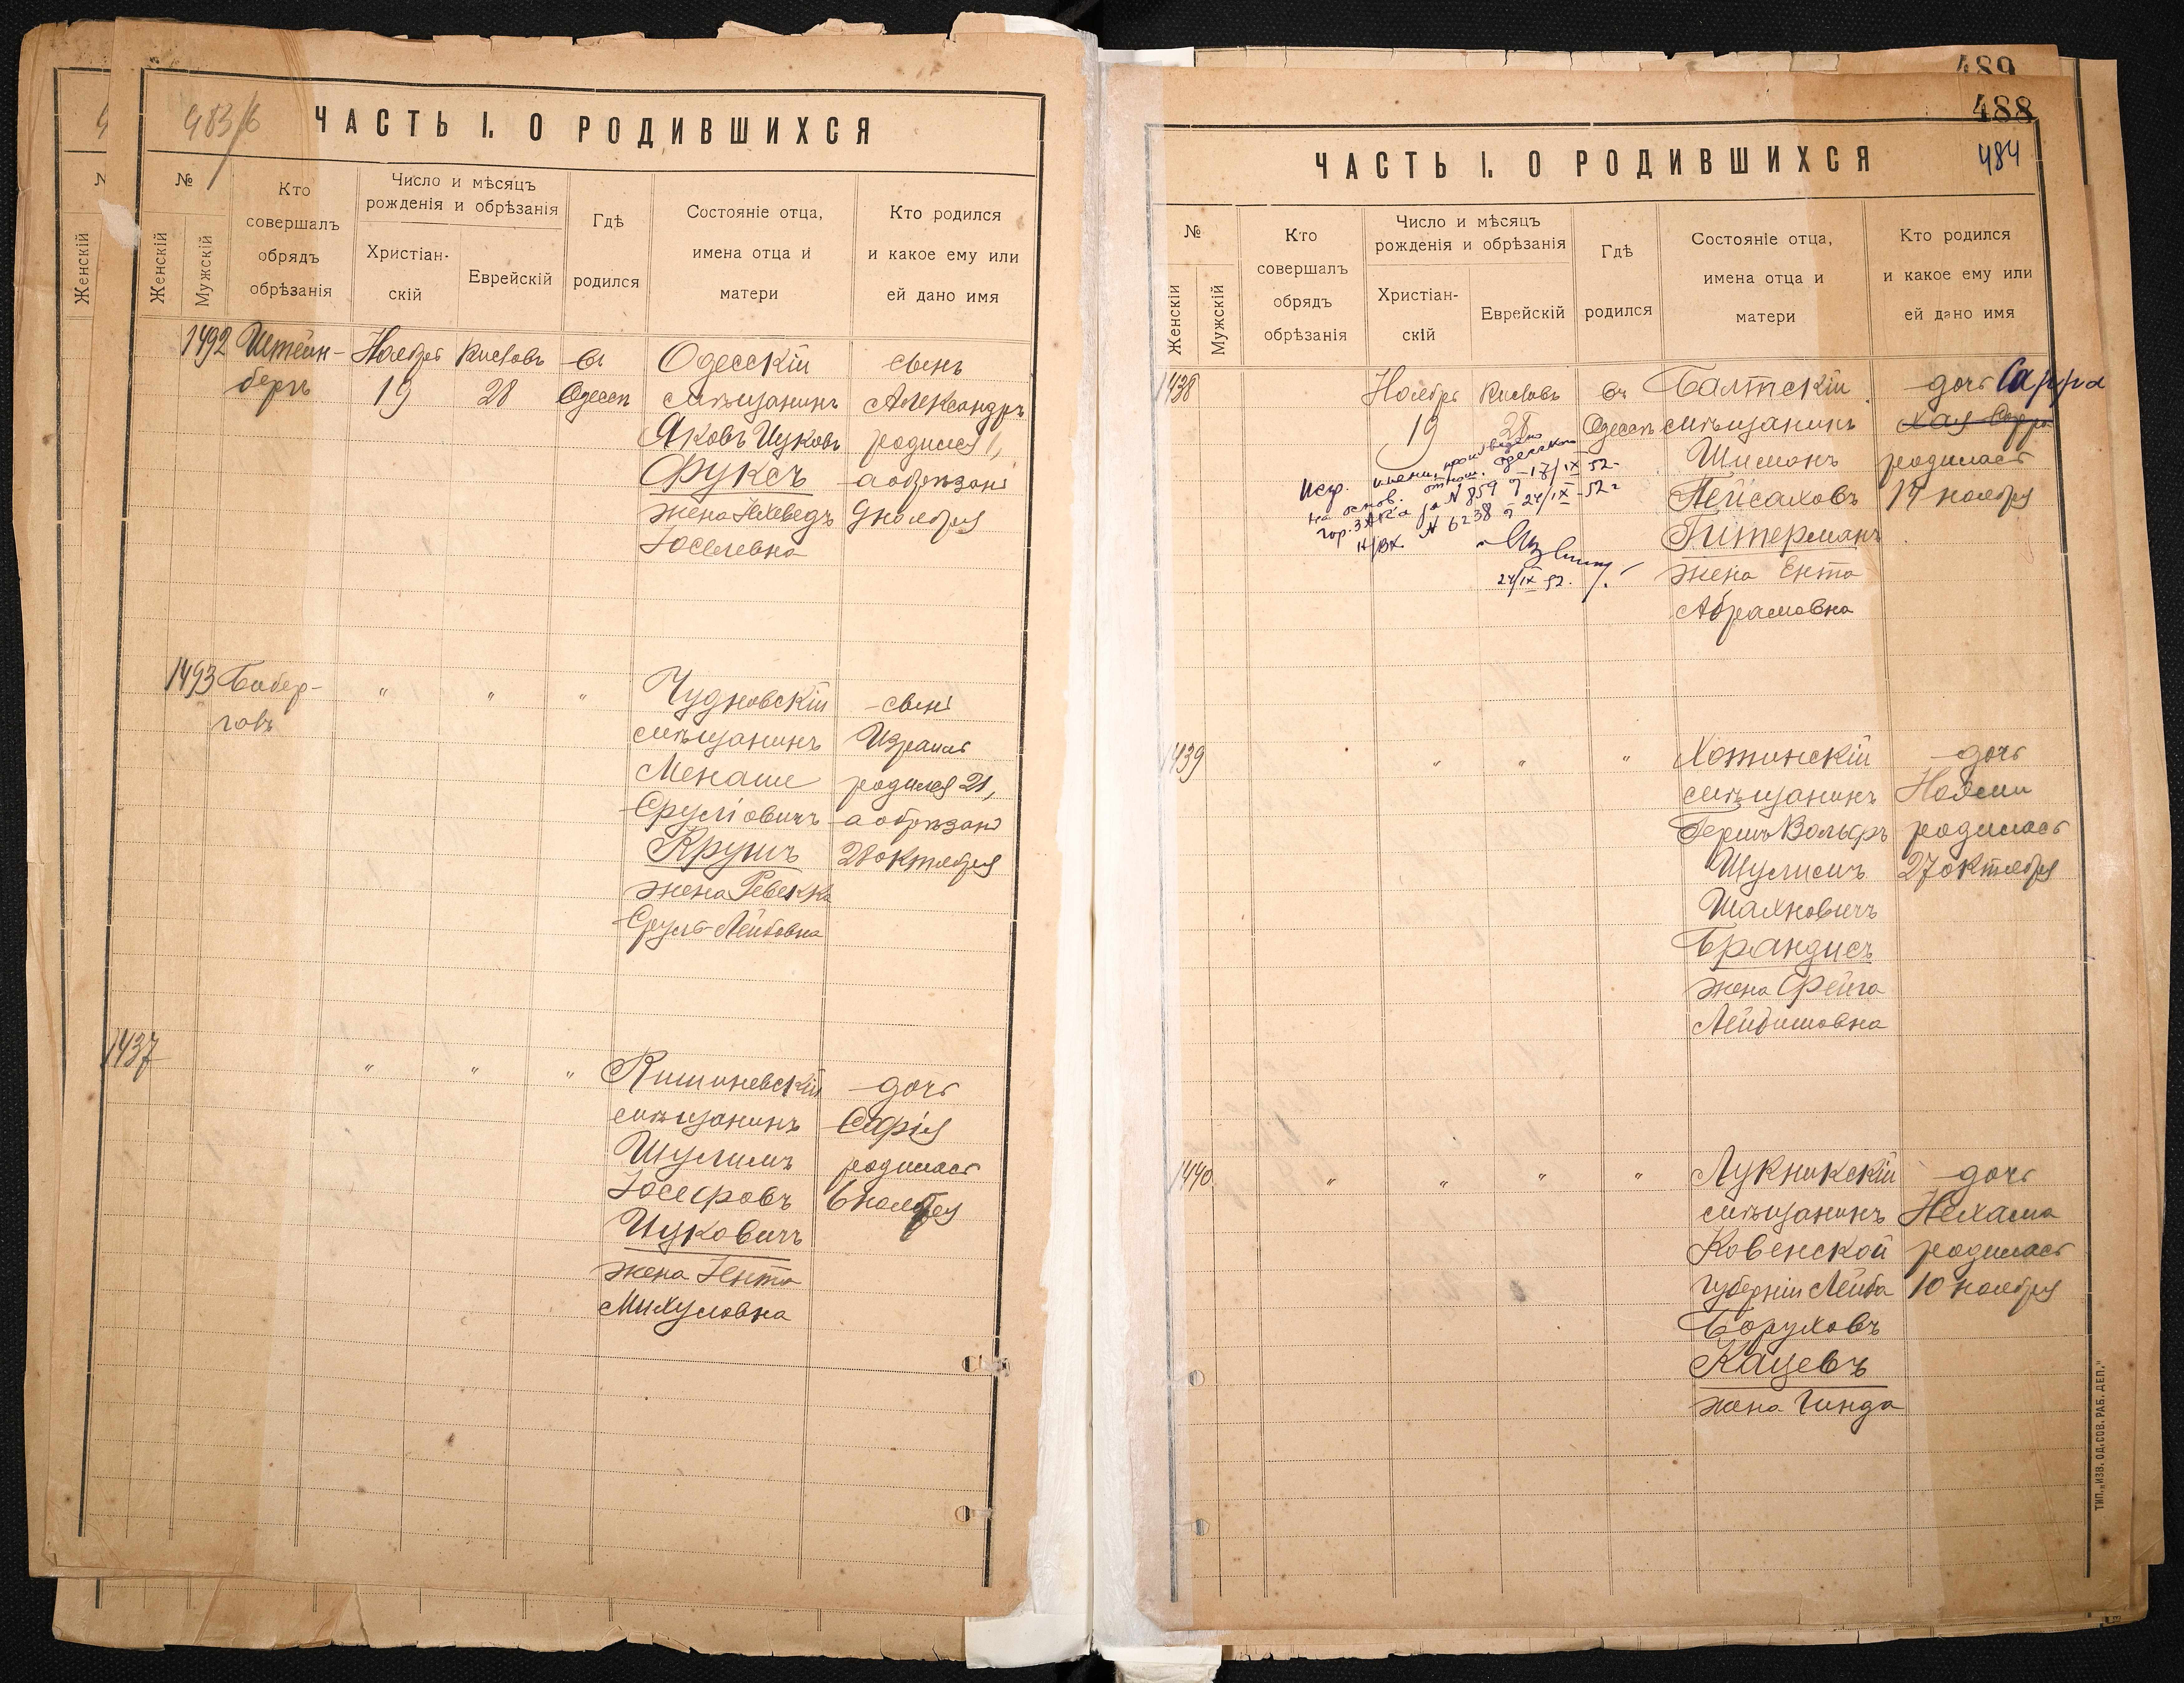 483/б
ЧАСТЬ I. О РОДИВШИХСЯ
№
Женскій
Мужскій
Кто
совершалъ
обрядъ
обрѣзанія
Число и мѣсяцъ
рожденія и обрѣзанія
Христіан-
скій
Еврейскій
Гдѣ
родился
Состояніе отца,
имена отца и
матери
Кто родился
и какое ему или
ей дано имя
1492 Штейн- Ноябрь Кисловъ въ Одесскій сынъ
бергъ 19 28 Одессѣ мѣщанинъ Александръ
Яковъ Ицковъ родился 1,
Фуксъ а обрѣзанъ
жена Іохеведъ 9 ноября
Іоселевна
1493 Бибер- " " " Чудновскій сынъ
говъ мѣщанинъ Израиль
Менаше родился 21,
Сруліовичъ а обрѣзанъ
Крушъ 28 октября
жена Ревекка
Сруль-Лейбовна
1437 " " " Кишиневскій дочь
мѣщанинъ Софія
Шулимъ родилась
Іосефовъ 6 ноября
Ицковичъ
жена Іента
Михуловна
489
488
484
ЧАСТЬ I. О РОДИВШИХСЯ
№
Женскій
Мужскій
Кто
совершалъ
обрядъ
обрѣзанія
Число и мѣсяцъ
рожденія и обрѣзанія
Христіан-
скій
Еврейскій
Гдѣ
родился
Состояніе отца,
имена отца и
матери
Кто родился
и какое ему или
ей дано имя
1438 Ноябрь Кисловъ въ Балтскій дочь Сарра
19 28 Одессѣ мѣщанинъ Хая-Сарра
Шиманъ родилась
Пейсаховъ 14 ноября
Гитерманъ
жена Ента
Абрамовна
Испр. имени произведено
на основ. отнош. Одесского
гор. ЗАГСа за N 859 от 17/IX-52
н/вх. N 6238 от 24/IX-52г
24/IX 52.
1439 " " " Хотинскій дочь
мѣщанинъ Ноэми
Гершъ Вольфъ родилась
Шулимъ 27 октября
Шахновичъ
Брандисъ
жена Фейга
Лейбишовна
1440 " " " " Лукникскій дочь
мѣщанинъ Нехама
Ковенской родилась
губерніи Лейба 10 ноября
Боруховъ
Кацевъ
жена Гинда
ТИП. „ИЗВ. ОД. СОВ. РАБ. ДЕП."